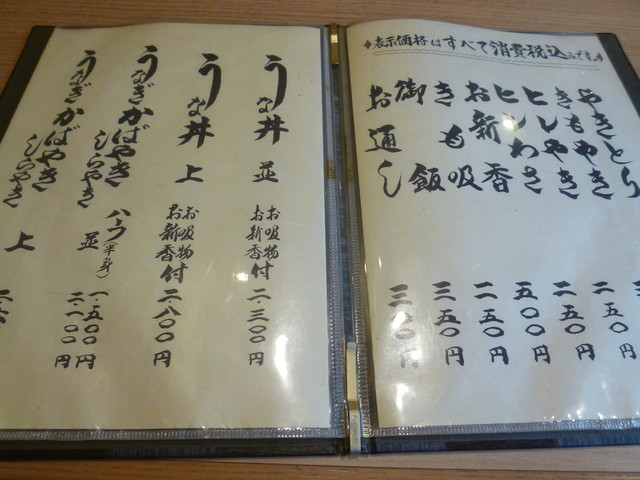 表示価格はすべて消費税込みです。
やきとり
きもやき 二五〇
ヒレやき 二五〇円
とりわさ 五〇〇円
お新香 二五〇円
きも吸 三五〇円
御飯
お通し 三〇〇円
うな丼 並 お吸物 お新香 付 二・三〇〇円
うな丼 上 お吸物 お新香 付 二・八〇〇円
うなぎ かばやき しらやき ハーフ(半身) 一・五〇〇円
並 二・一〇〇円
うなぎ かばやき しらやき 上 二・六